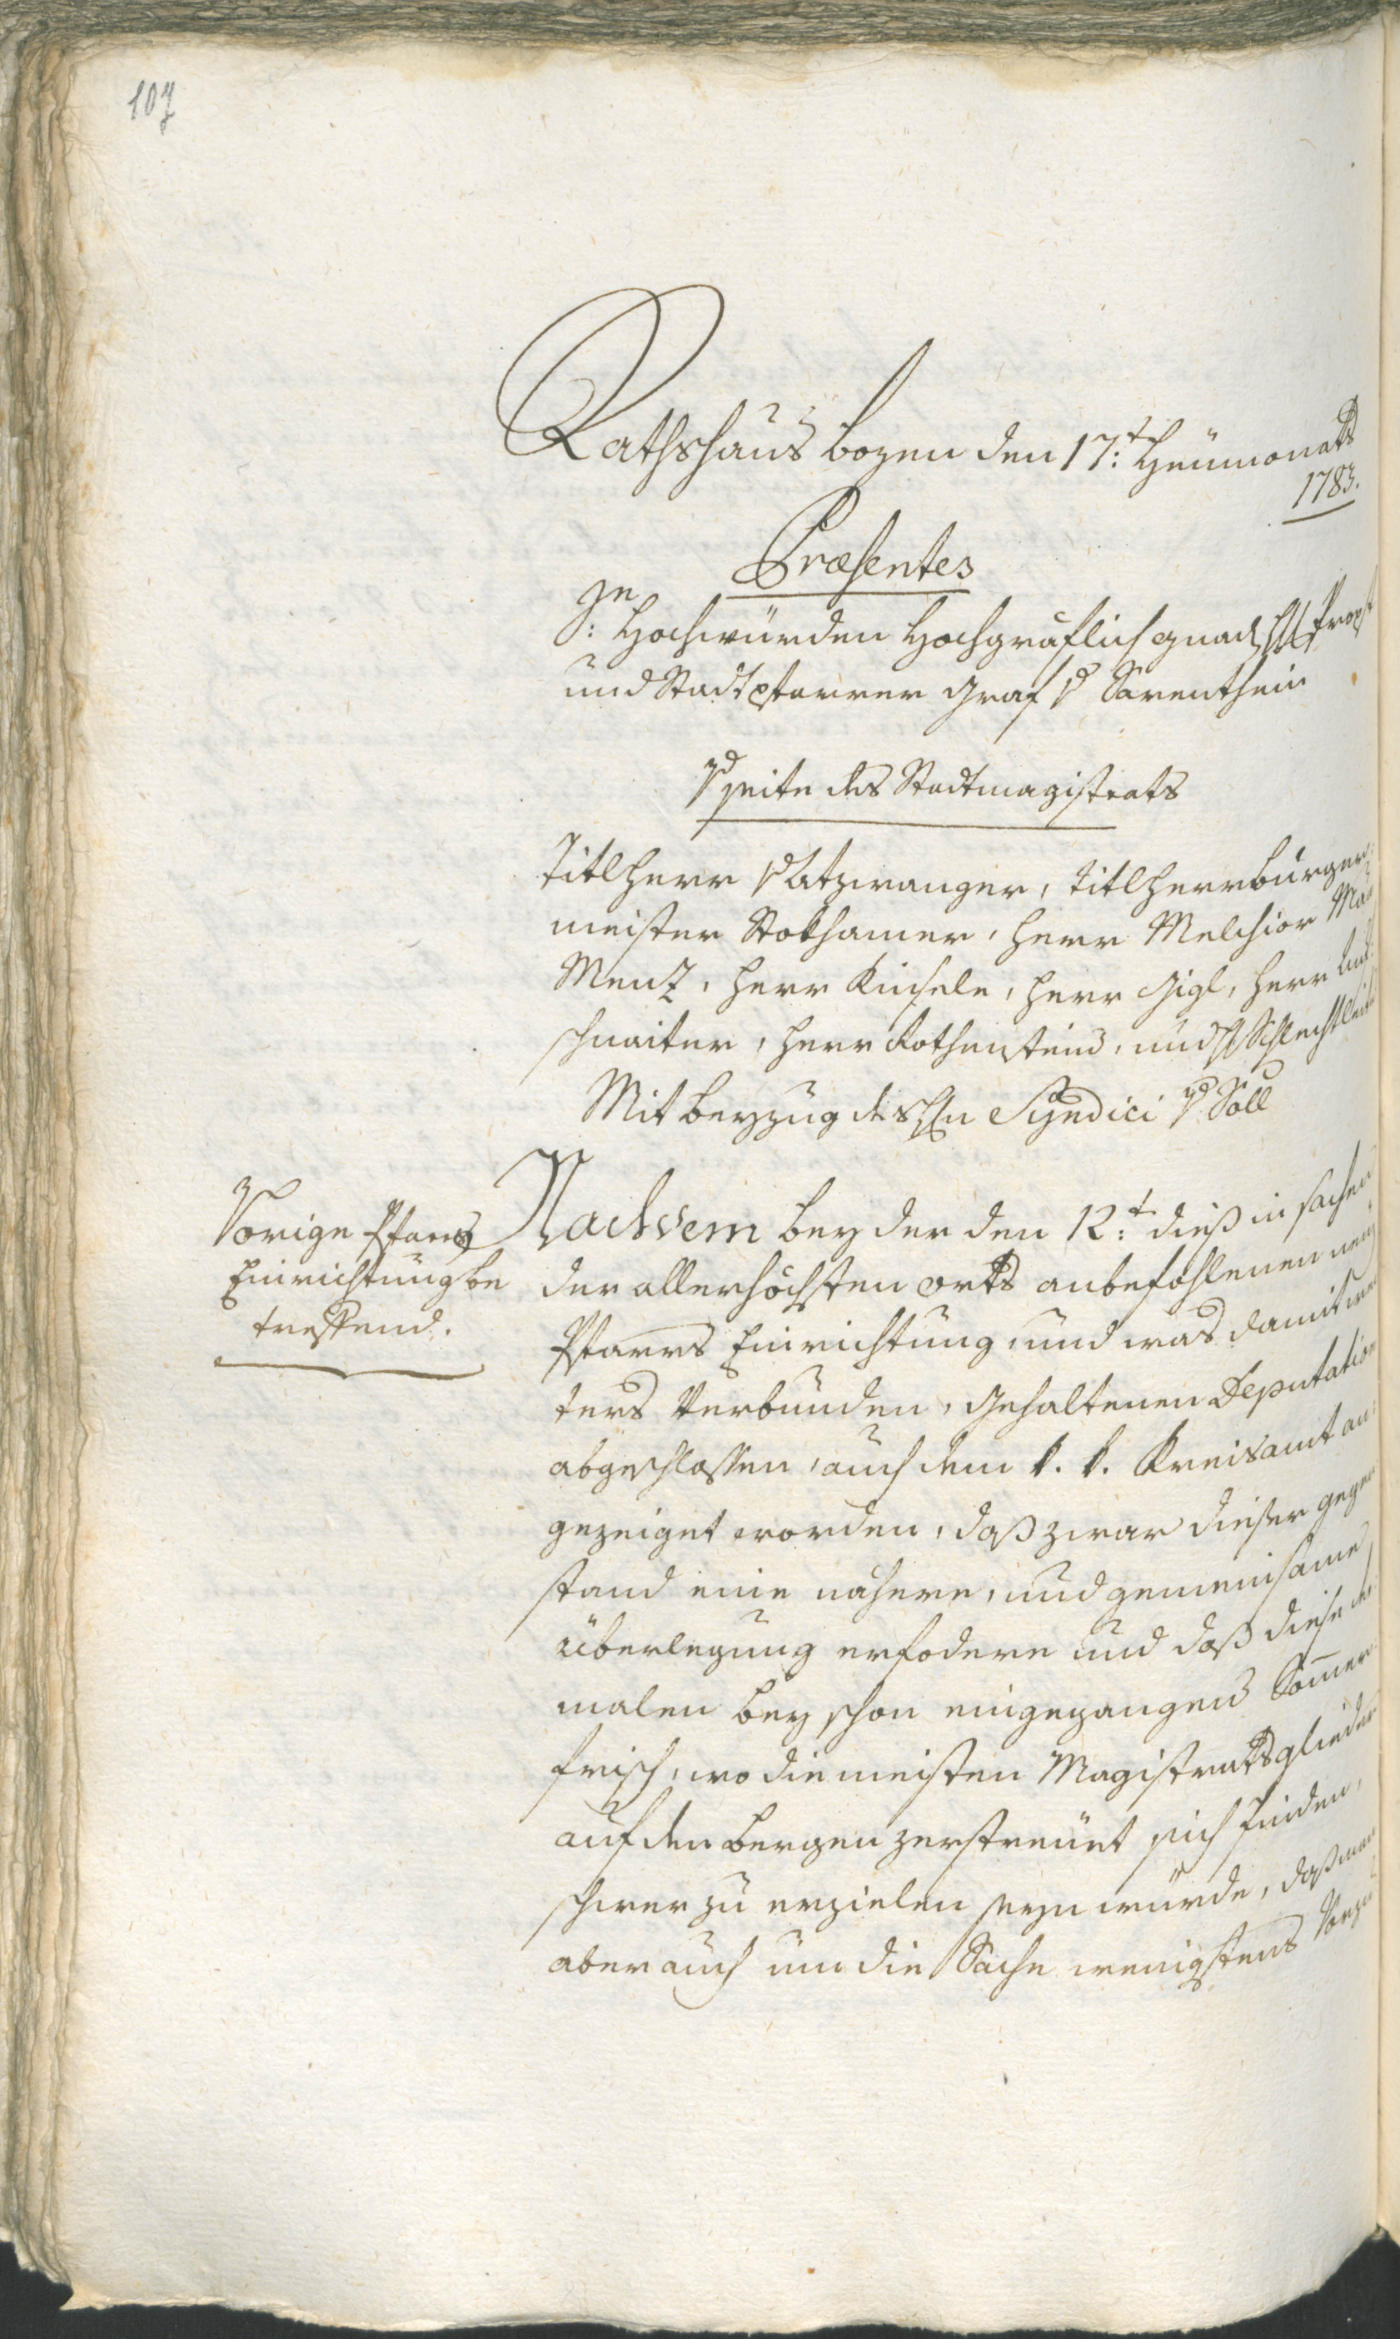 107
Rathshaus bozen den 17:t Heumonats
1783.
Præsentes
Hochwürden Hochgräflich gnad H Propst
und Stadtpfarrer Graf v Sarenthein
v seite des Stadtmagistrats
Titl Herr v Atzwanger, Titl Herr bürger
meister Stokhamer, Herr Melchior
Menz, Herr Kinsele, Herr Gigl, Herr
schnaiter, Herr Rottensteiner, und H Schlechtleitner
Mit beyzug des H Syndici v Söll
Vorige Pfarrs
Einrichtung be
treffend.
Nachdem bey der den 12:t dieß in sachen
der allerhöchsten orts anbefohlenen neuen
Pfarrs Einrichtung, und was damit wei
ters verbunden, gehaltenen Deputation
abgeschlossen, auch dem k. k. Kreisamt an
gezeiget worden, daß zwar dieser gegen
stand eine nähere, und gemeinsame
überlegung erfodere und daß diese der
malen bey schon eingegangener Sommer
frisch, wo die meisten Magistratsglieder
auf den bergen zerstreuet sich finden,
schwer zu erzielen seyn würde, daß man
aber auch um die Sache wenigstens